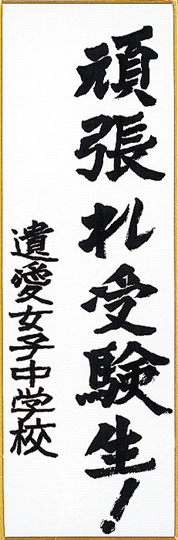 頑張れ受験生！
遺愛女子中学校